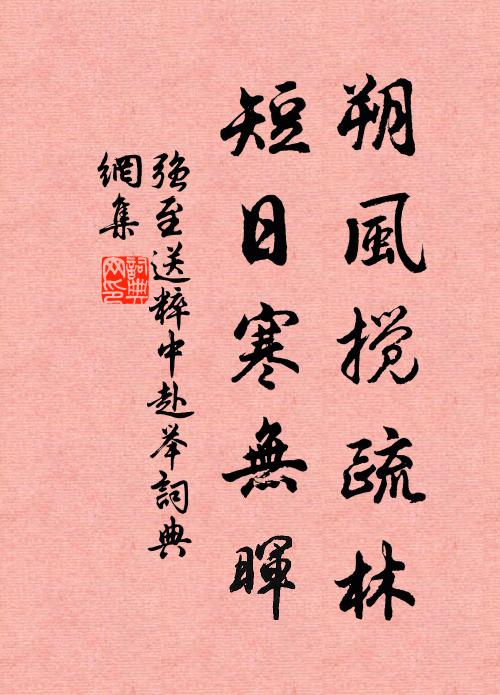 朔風搅疏林
短日寒無暉
强至送粹中赴举詞典
網集
詞典
网印